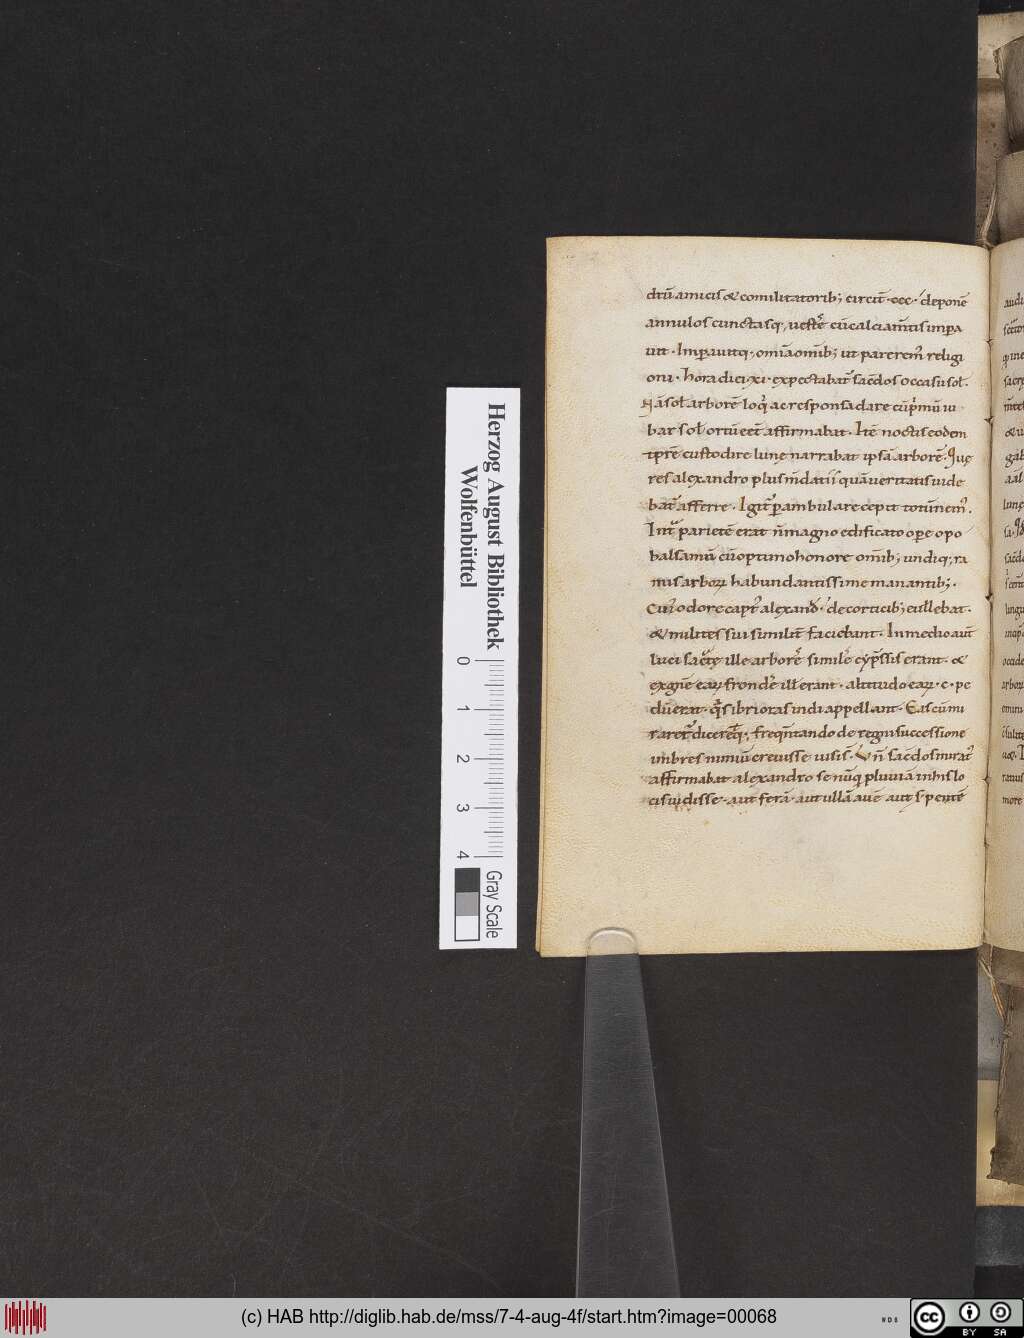 ditũ amicis & comilitatorib; circit̃ ·ccc· deponẽ
annulos cunctasq; uestẽ cũ calciam̃tis impa
uit · Imp̃auitq; om̃ia om̃ib; ut parerem̃ religi
oni · hora diei xi · expectabat̃ sac̃dos occasũ sol̃ ·
Nã sol̃ arborẽ loq̃ ac responsa dare cũ p̃mũ iu
bar sol̃ ortũ eẽt affirmabat · Itẽ noctis eodem
tp̃re custodire lunę narrabat ipsã arborẽ · Quę
res alexandro plus m̃datii quã ueritatis uide
bat̃ afferre · Igit̃ p̃ambulare cepit totũ nem̃ ·
Int̃ parietẽ erat ñ magno edificato ope opo
balsamũ cũ optimo honore om̃ib; undiq; ra
mis arboꝝ habundantissime manantib; ·
Cui odore capt̃ alexand̃ · de corticib; eullebat ·
& milites sui similit̃ faciebant · In medio aut̃
luci sac̃tę ille arborẽ similẽ cyp̃ssis erant · &
exgñe eaꝝ frondẽ ill̃ erant · altitudo eaꝝ · c · pe
dũ erat · q̃s ibrioras indi appellant · Eas cũ mi
rarer̃ dicereq̃; freq̃ntando de regni successione
imbres nimiũ creuisse uisis̃ · Uñ sac̃dos mirat̃
affirmabat alexandro se nũq̃ pluuiã in his lo
cis uidisse · aut ferã · aut ullã auẽ aut s̃pentẽ
Herzog August Bibliothek
Wolfenbüttel
0 1 2 3 4
Gray Scale
(c) HAB http://diglib.hab.de/mss/7-4-aug-4f/start.htm?image=00068
cc BY SA